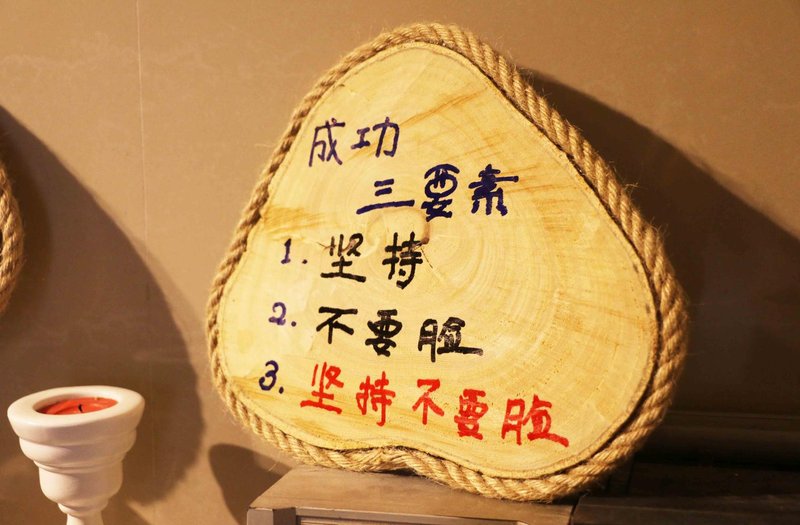 成功
三要素
1. 坚持
2. 不要脸
3. 坚持不要脸